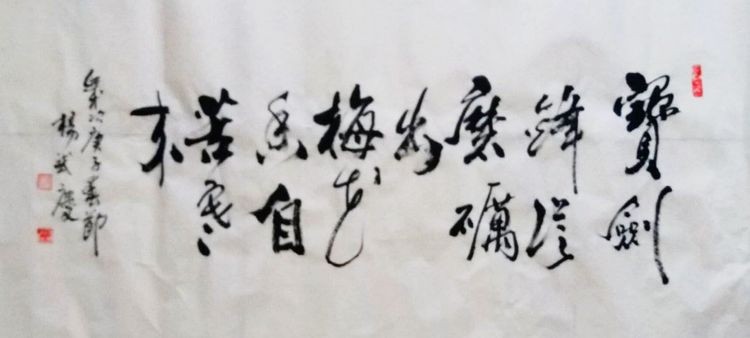 寶劍
鋒從
磨礪
出
梅花
香自
苦寒
来
歲次庚子春節
楊武慶